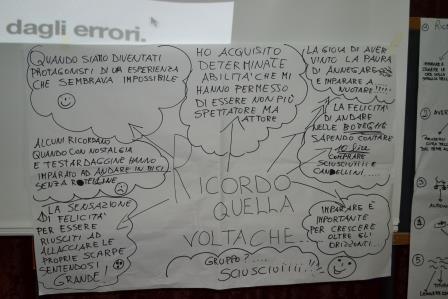 dagli errori.
QUANDO SIAMO DIVENTATI
PROTAGONISTI DI UNA ESPERIENZA
CHE SEMBRAVA IMPOSSIBILE
HO ACQUISITO
DETERMINATE
ABILITA' CHE MI
HANNO PERMESSO
DI ESSERE NON PIÙ
SPETTATORE MA
ATTORE
LA GIOIA DI AVER
VINTO LA PAURA
DI ANNEGARE
E IMPARARE A
NUOTARE!!!!
LA FELICITÀ
DI ANDARE
NELLE BOTTEGHE
SAPENDO CONTARE
10 lire
COMPRARE
SCIUSCIUIII E
CANDELLINI....
ALCUNI RICORDANO
QUANDO CON NOSTALGIA
E TESTARDAGGINE HANNO
IMPARATO AD ANDARE IN BICI
SENZA ROTELLINE
RICORDO
QUELLA
VOLTA CHE...
LA SENSAZIONE
DI FELICITA'
PER ESSERE
RIUSCITI AD
ALLACCIARE LE
PROPRIE SCARPE
SENTENDOSI
GRANDE!
IMPARARE È
IMPORTANTE
PER CRESCERE
OLTRE GLI
ORIZZONTI...
GRUPPO?....
SCIUSCIUIIII!!